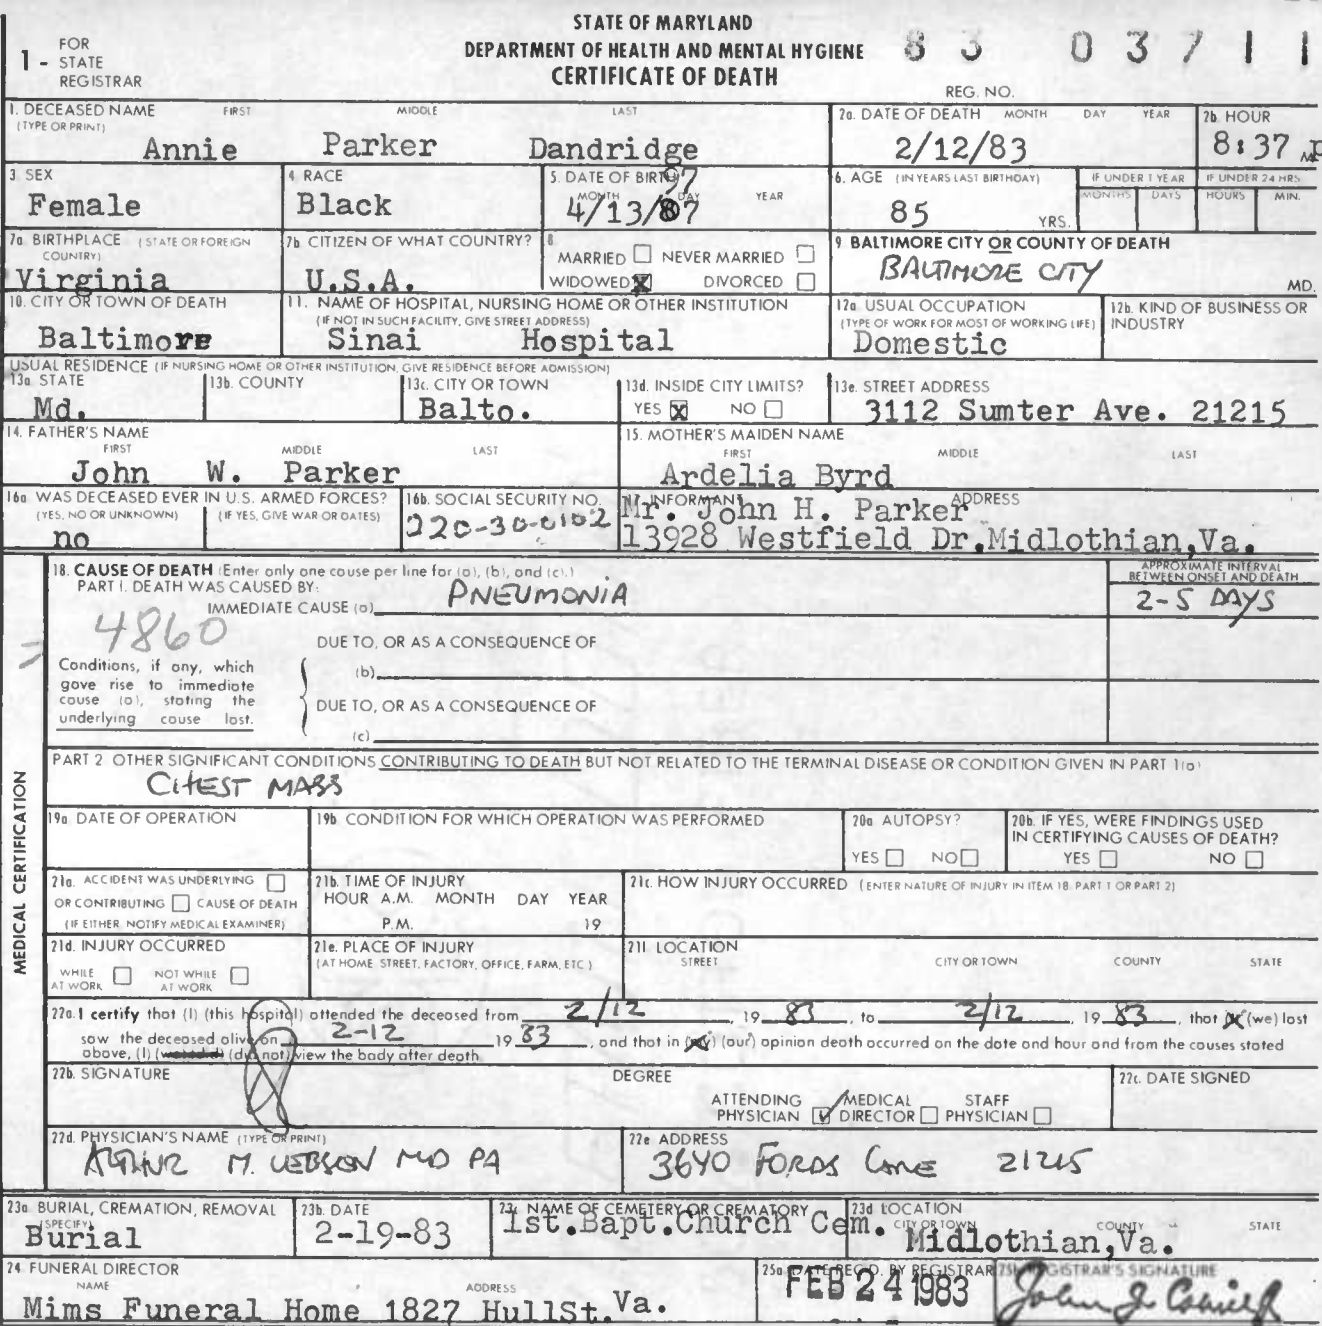 STATE OF MARYLAND
DEPARTMENT OF HEALTH AND MENTAL HYGIENE
CERTIFICATE OF DEATH
1 - FOR STATE REGISTRAR
83 03711
REG. NO.
1. DECEASED NAME FIRST MIDDLE LAST
(TYPE OR PRINT)
Annie Parker Dandridge
2a. DATE OF DEATH MONTH DAY YEAR
2/12/83
2b. HOUR
8:37 P M
3. SEX
Female
4. RACE
Black
5. DATE OF BIRTH
MONTH DAY YEAR
97
4/13/87
6. AGE (IN YEARS LAST BIRTHDAY)
85 YRS.
IF UNDER 1 YEAR
MONTHS DAYS
IF UNDER 24 HRS.
HOURS MIN.
7a. BIRTHPLACE (STATE OR FOREIGN COUNTRY)
Virginia
7b. CITIZEN OF WHAT COUNTRY?
U.S.A.
8.
MARRIED NEVER MARRIED
WIDOWED X DIVORCED
9. BALTIMORE CITY OR COUNTY OF DEATH
BALTIMORE CITY MD.
10. CITY OR TOWN OF DEATH
Baltimore
11. NAME OF HOSPITAL, NURSING HOME OR OTHER INSTITUTION
(IF NOT IN SUCH FACILITY, GIVE STREET ADDRESS)
Sinai Hospital
12a. USUAL OCCUPATION
(TYPE OF WORK FOR MOST OF WORKING LIFE)
Domestic
12b. KIND OF BUSINESS OR INDUSTRY
USUAL RESIDENCE (IF NURSING HOME OR OTHER INSTITUTION, GIVE RESIDENCE BEFORE ADMISSION)
13a. STATE
Md.
13b. COUNTY
13c. CITY OR TOWN
Balto.
13d. INSIDE CITY LIMITS?
YES X NO
13e. STREET ADDRESS
3112 Sumter Ave. 21215
14. FATHER'S NAME
FIRST MIDDLE LAST
John W. Parker
15. MOTHER'S MAIDEN NAME
FIRST MIDDLE LAST
Ardelia Byrd
16a. WAS DECEASED EVER IN U.S. ARMED FORCES?
(YES, NO OR UNKNOWN) (IF YES, GIVE WAR OR DATES)
no
16b. SOCIAL SECURITY NO.
220-30-0102
17. INFORMANT ADDRESS
Mr. John H. Parker
13928 Westfield Dr.Midlothian,Va.
MEDICAL CERTIFICATION
18. CAUSE OF DEATH (Enter only one cause per line for (a), (b), and (c).)
PART I. DEATH WAS CAUSED BY:
IMMEDIATE CAUSE (a) PNEUMONIA
APPROXIMATE INTERVAL
BETWEEN ONSET AND DEATH
2-5 DAYS
4860
DUE TO, OR AS A CONSEQUENCE OF
(b)
Conditions, if any, which
gave rise to immediate
cause (a), stating the
underlying cause last.
DUE TO, OR AS A CONSEQUENCE OF
(c)
PART 2. OTHER SIGNIFICANT CONDITIONS CONTRIBUTING TO DEATH BUT NOT RELATED TO THE TERMINAL DISEASE OR CONDITION GIVEN IN PART 1(a)
CHEST MASS
19a. DATE OF OPERATION
19b. CONDITION FOR WHICH OPERATION WAS PERFORMED
20a. AUTOPSY?
YES NO
20b. IF YES, WERE FINDINGS USED
IN CERTIFYING CAUSES OF DEATH?
YES NO
21a. ACCIDENT WAS UNDERLYING
OR CONTRIBUTING CAUSE OF DEATH
(IF EITHER, NOTIFY MEDICAL EXAMINER)
21b. TIME OF INJURY
HOUR A.M. MONTH DAY YEAR
P.M. 19
21c. HOW INJURY OCCURRED (ENTER NATURE OF INJURY IN ITEM 18, PART 1 OR PART 2)
21d. INJURY OCCURRED
WHILE AT WORK NOT WHILE AT WORK
21e. PLACE OF INJURY
(AT HOME, STREET, FACTORY, OFFICE, FARM, ETC.)
21f. LOCATION
STREET CITY OR TOWN COUNTY STATE
22a. I certify that (I) (this hospital) attended the deceased from 2/12 19 83, to 2/12, 19 83, that (I) (we) last
saw the deceased alive on 2-12 19 83, and that in (my) (our) opinion death occurred on the date and hour and from the causes stated
above, (I) (did not) view the body after death
22b. SIGNATURE
DEGREE
ATTENDING PHYSICIAN MEDICAL DIRECTOR STAFF PHYSICIAN
22c. DATE SIGNED
22d. PHYSICIAN'S NAME (TYPE OR PRINT)
ARTHUR M. MD PA
22e. ADDRESS
3640 FORDS LANE 21215
23a. BURIAL, CREMATION, REMOVAL
SPECIFY
Burial
23b. DATE
2-19-83
23c. NAME OF CEMETERY OR CREMATORY
1st.Bapt.Church Cem.
23d. LOCATION
CITY OR TOWN COUNTY STATE
Midlothian,Va.
24. FUNERAL DIRECTOR
NAME ADDRESS
Mims Funeral Home 1827 HullSt.Va.
25a. DATE REC'D. BY REGISTRAR
FEB 24 1983
25b. REGISTRAR'S SIGNATURE
John J.